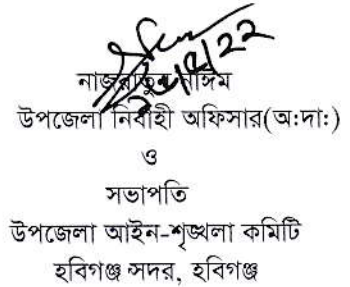 নাজরাতুন নাঈম
উপজেলা নির্বাহী অফিসার(অ:দা:)
ও
সভাপতি
উপজেলা আইন-শৃঙ্খলা কমিটি
হবিগঞ্জ সদর, হবিগঞ্জ